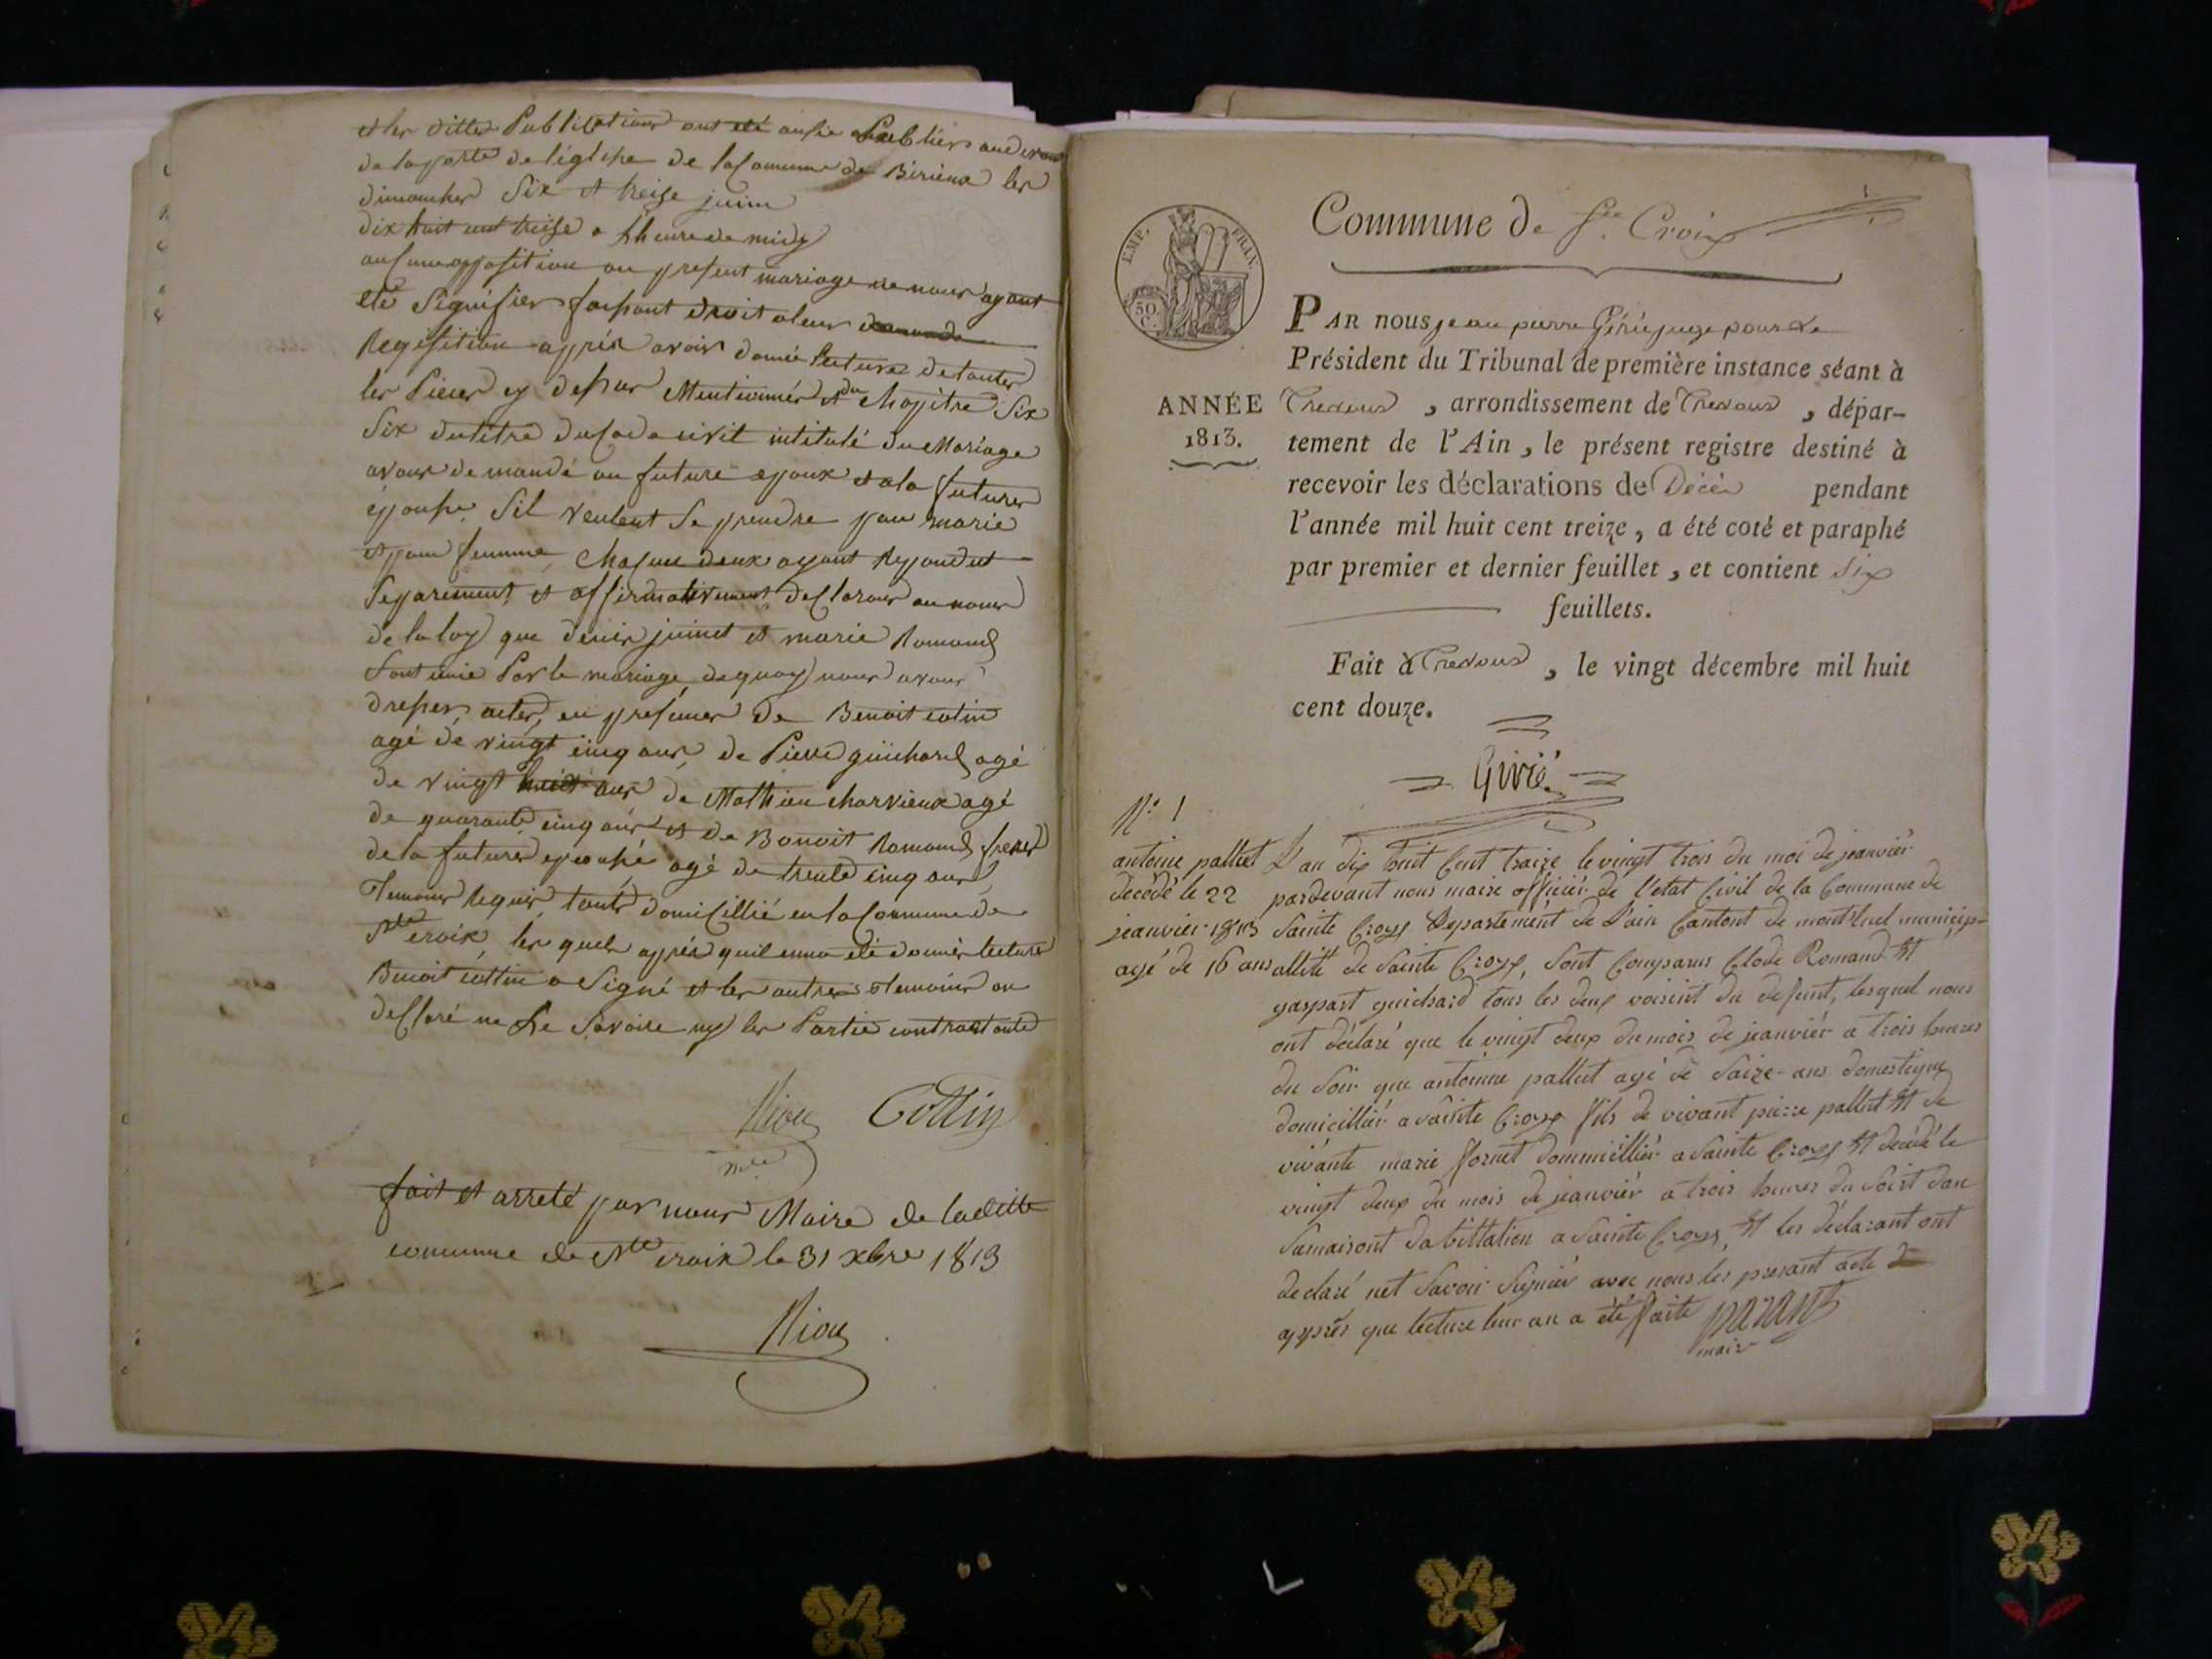 et les dittes Publications ont été ausie Publiées audevant
de la porte de léglise de la Comune de Birieux les
dimanches Six et treise juin
dix huit cent treise a Lheure de midy
aucune opposition au present mariage ne nous ayant
été Signifier faisant droit a leur
Requisition apprès avoir donné lecture de toutes
les Pieces cy dessus Mentionnées et du Chapitre Six
Six du titre du Code civil intitulé du Mariage
avons demandé au future epoux et a la future
épouse Sil veulent Se prendre pour marie
et pour femme, Chacun deux ayant Repondut
Separement et affirmativement declarons au nom
de la loy que denis juinet et marie Romand
Sont unie Par le mariage de quoy nous avons
dresser actes, en presences de Benoit cotin
agé de vingt cinq ans, de Pierre guichard agé
de vingt huit ans de Mathieu charvieux agé
de quarante cinq ans et de Bonoit Romand frerer
de la future epouse agé de trente cinq ans
Temoins Requis touts domicillié en la Commune de
Ste croix, les quels apprés quil en na été donnés lecture
Benoit cottin a Signé et les autres temoins on
declaré ne Le Savoire ny les Partie contractante
Niou Cottin
mre
fait et arreté par nous Maire de laditte
comune de Ste croix le 31 xbre 1813
Niou
Commune de Ste. Croix
EMP. FRAN.
50 C.
PAR nous jean pierre Girié juge pour Le
Président du Tribunal de première instance séant à
ANNÉE 1813.
Trevoux, arrondissement de Trevoux, dépar-
tement de l'Ain, le présent registre destiné à
recevoir les déclarations de Décès pendant
l'année mil huit cent treize, a été coté et paraphé
par premier et dernier feuillet, et contient Six
feuillets.
Fait à Trevoux, le vingt décembre mil huit
cent douze.
Girié
N.° 1
antoine pallut
décédé le 22
jeanvier 1813
agé de 16 ans
L'an dix huit Cent traize le vingt trois du moi de jeanviér
pardevant nous maire officiér de l'état Civil de la Commune de
Sainte Croys Departement de L'ain Cantont de montluel municip-
allitté de Sainte Croys, Sont Comparus Clode Romand Et
gaspart guichard tous les deux voisint du defunt, lesquel nous
ont déclaré que le vingt deux du mois de jeanviér a trois heures
du Soir que antoinne pallut agé de Saize ans domestique
domicilliér a Sainte Croys fils de vivant pierre pallut Et de
vivante marie fornet dommicilliér a Sainte Croys Et decédé le
vingt deux du mois de jeanviér a trois heures du Soirt dan
Samaisont dabittation a Sainte Croys, Et les déclarant ont
declaré net Savoir Signiér avec nous les presant acte
apprés que lecture leur an a été faite parant
maire